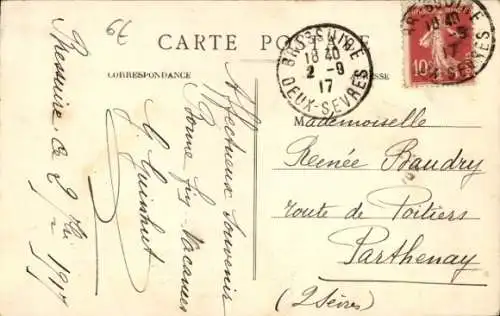 6€
CARTE POSTALE
CORRESPONDANCE
BRESSUIRE
18 40
2 - 9
17
DEUX-SEVRES
10
Bressuire, ce 2 7bre 1917
Affectueux souvenir
Bonne fin vacances
Mademoiselle
Renée Baudry
route de Poitiers
Parthenay
(2 Sèvres)